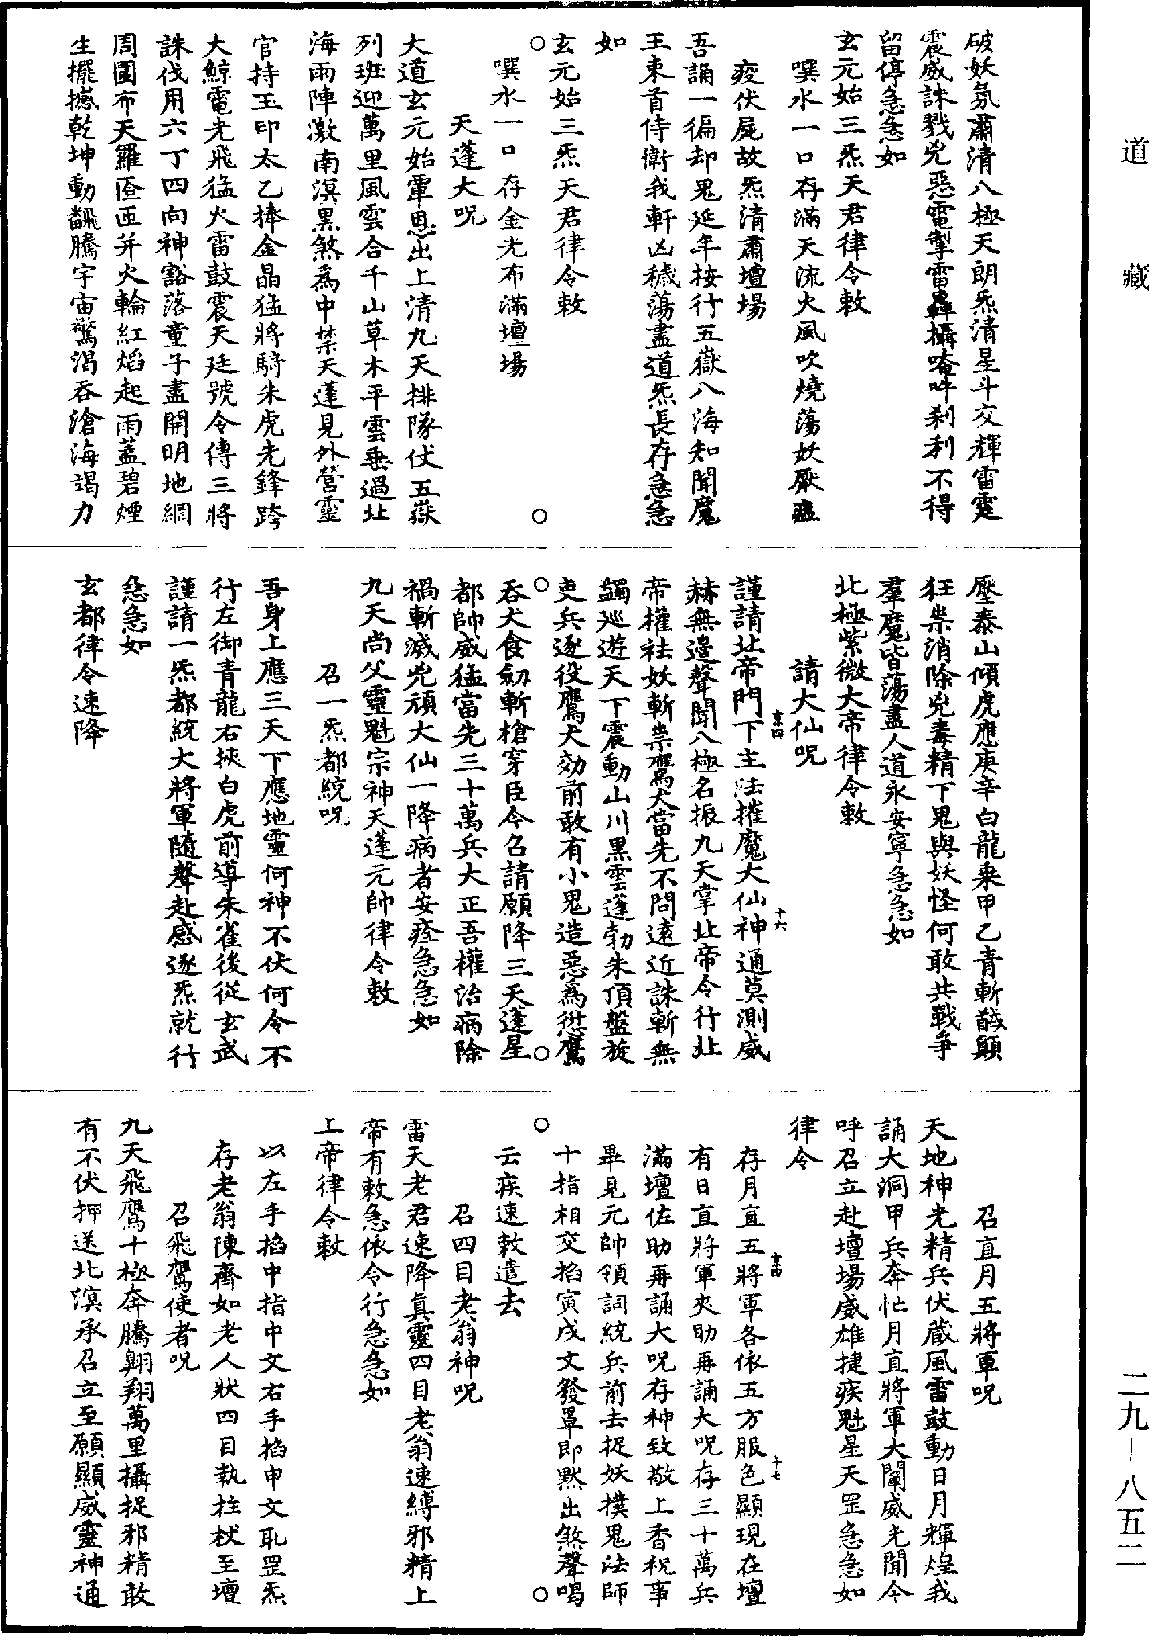 道藏
二九—八五二
破妖氛肅清八極天朗炁清星斗交輝雷霆
震威誅戮兇惡電掣雷轟攝唵吽剎利不得
留停急急如
玄元始三炁天君律令敕
噀水一口存滿天流火風吹燒蕩妖厭蠱
疫伏屍故炁清肅壇場
吾誦一徧却鬼延年按行五嶽八海知聞魔
王束首侍衛我軒凶穢蕩盡道炁長存急急
如
玄元始三炁天君律令敕
噀水一口存金光布滿壇場
天蓬大呪
大道玄元始䨱恩出上清九天排隊仗五嶽
列班迎萬里風雲合千山草木平雲垂過北
海雨陣激南溟黑煞為中禁天蓬見外營靈
官持玉印太乙捧金晶猛將騎朱虎先鋒跨
大鯨電光飛猛火雷鼓震天廷號令傳三將
誅伐用六丁四向神豁落童子盡開明地網
周圍布天羅匝匝并火輪紅焰起雨蓋碧煙
生擺撼乾坤動飜騰宇宙驚渴吞滄海竭力
壓泰山傾虎應庚辛白龍乘甲乙青斬馘顛
狂祟消除兇毒精下鬼與妖怪何敢共戰爭
羣魔皆蕩盡人道永安寧急急如
北極紫微大帝律令敕
請大仙呪
謹請北帝門下主法摧魔大仙神通莫測威
赫無邊聲聞八極名振九天掌北帝令行北
帝權祛妖斬祟鷹犬當先不問遠近誅斬無
蠲巡遊天下震動山川黑雲蓬勃朱頂盤旋
吏兵逐役鷹犬効前敢有小鬼造惡為愆鷹
吞犬食劒斬槍穿臣今召請願降三天蓬星
都帥威猛當先三十萬兵大正吾權治病除
禍斬滅兇頑大仙一降病者安痊急急如
九天尚父靈魁宗神天蓬元帥律令敕
召一炁都統呪
吾身上應三天下應地靈何神不伏何令不
行左御青龍右挾白虎前導朱雀後從玄武
謹請一炁都統大將軍隨聲赴感逐炁就行
急急如
玄都律令速降
召直月五將軍呪
天地神光精兵伏藏風雷鼓動日月輝煌我
誦大洞甲兵奔忙月直將軍大闡威光聞今
呼召立赴壇場威雄捷疾魁星天罡急急如
律令
存月直五將軍各依五方服色顯現在壇
有日直將軍夾助再誦大呪存三十萬兵
滿壇佐助再誦大呪存神致敬上香祝事
畢見元帥領詞統兵前去捉妖撲鬼法師
十指相交掐寅戌文發罩即黙出煞聲喝
云疾速敕遣去
召四目老翁神呪
雷天老君速降真靈四目老翁速縛邪精上
帝有敕急依令行急急如
上帝律令敕
以左手掐中指中文右手掐申文取罡炁
存老翁陳齊如老人狀四目執拄杖至壇
召飛鷹使者呪
九天飛鷹十極奔騰翺翔萬里攝捉邪精敢
有不伏押送北溟承召立至願顯威靈神通